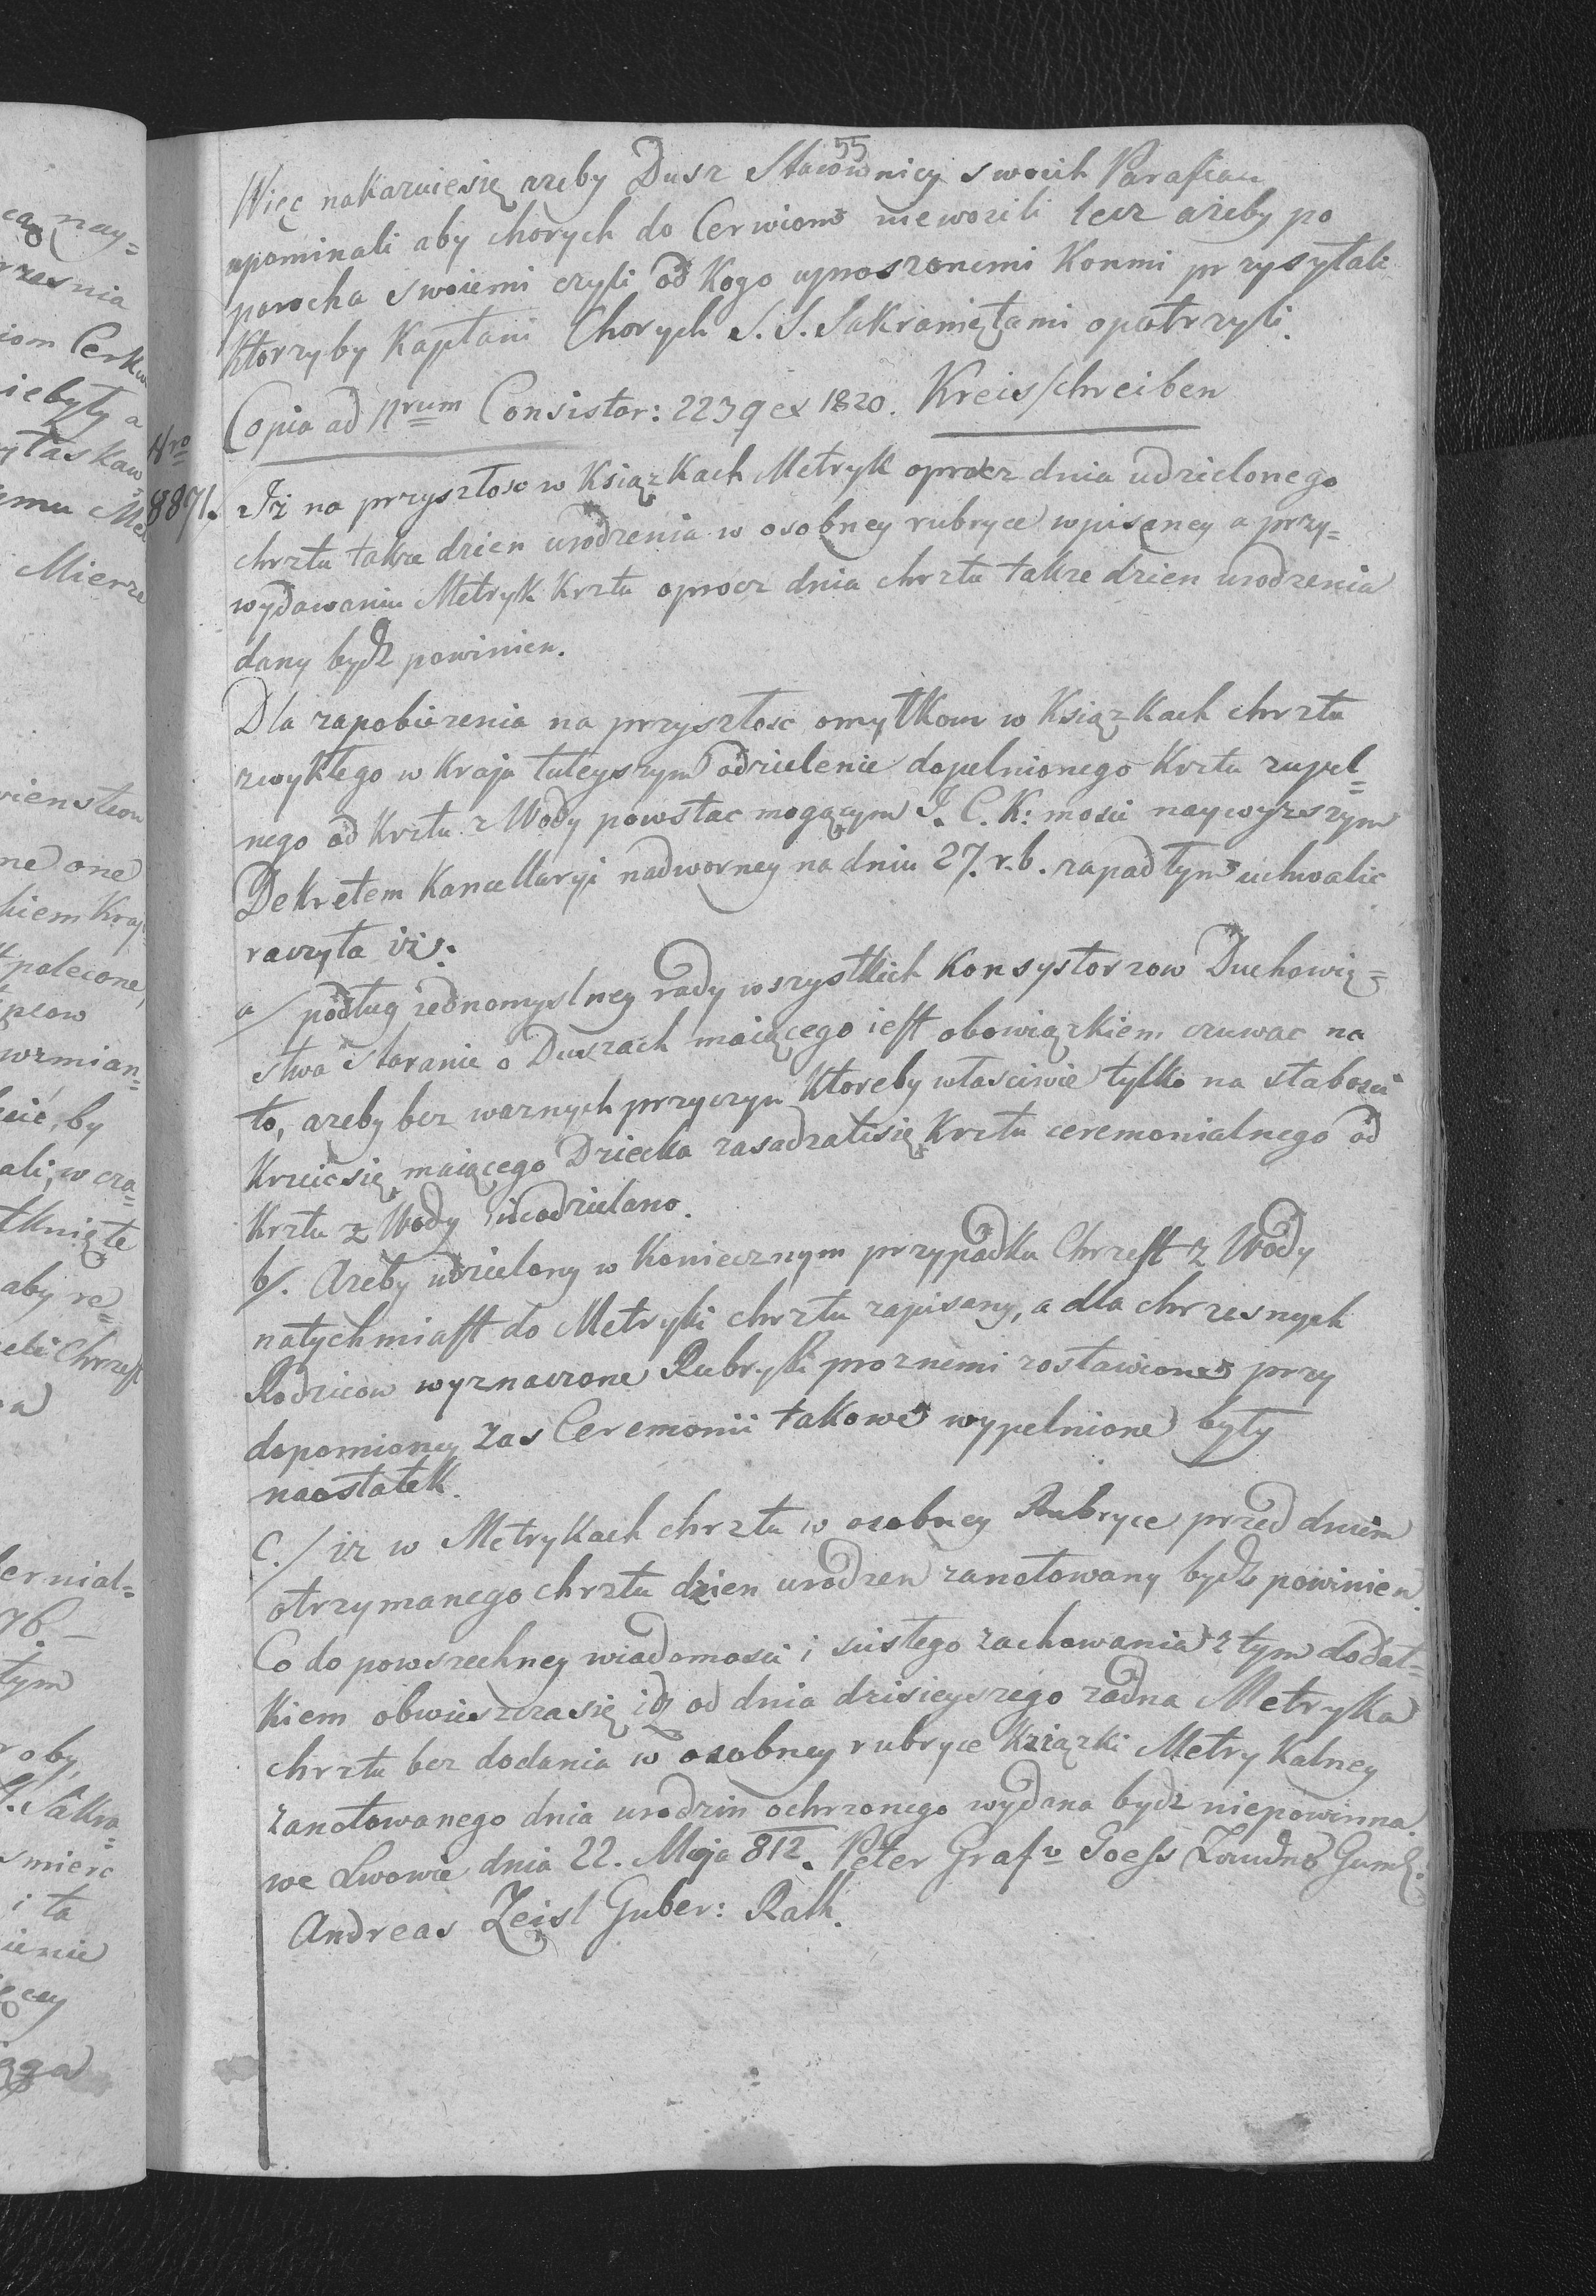 55
Więc nakazuiesię azeby Dusz Stacownicy swoich Parafian
upominali aby chorych do Cerwiom niewozili lecz ażeby po
parocha swoiemi czyli od Kogo uproszonemi Konmi przysyłali
Ktorzyby Kapłani Chorych S. S. Sakramiętami opatrzyli.
Copia ad Nrum Consistor: 2239 ex 1820. Kreisschreiben
Nro
8871.
Iż na przyszłosc w Ksiązkach Metryk oprócz dnia udzielonego
chrztu takze dzien urodzenia w osobney rubryce wpisaney a przy=
wydawaniu Metryk Krztu oprócz dnia chrztu takze dzien urodzenia
dany bydź powinien.
Dla zapobiezenia na przyszłosc omyłkom w Książkach chrztu
zwykłego w Kraju tuteyszym odzielenie dopelnionego Krztu zupel=
nego od Krztu z Wody powstac mogącym J. C. K: mosci naywyzszym
Dekretem Kancellaryi nadworney na dniu 27. r. b. zapadłym uchwalic
raczyła iż:
a/ podług iednomyslney rady wszystkich Konsystorzow Duchowię=
stwa staranie o Duszach maiącego iest obowiązkiem czuwac na
to, azeby bez waznych przyczyn Ktoreby własciwie tylko na słabosci
Krzcicsię maiącego Dziecka zasadzałysię Krztu ceremonialnego od
Krztu z Wody nieodzielano.
b/. Azeby udzielony w Koniecznym przypadku Chrzest z Wody
natychmiast do Metryki chrztu zapisany, a dla chrzesnych
Rodzicow wyznaczone Rubryki proznemi zostawione przy
dopomioney zas Ceremonii takowe wypelnione były
naostatek.
c./ iz w Metrykach chrztu w osobney Rubryce przed dniem
otrzymanego chrztu dzien urodzen zanotowany bydź powinien.
Co do powszechney wiadomosci i scistego zachowania z tym dodat=
kiem obwieszczasię iż od dnia dzisieyszego zadna Metryka
chrztu bez dodania w osobney rubryce Ksiązki Metrykalney
zanotowanego dnia urodzin ochrzonego wydana bydź niepowinna.
we Lwowie dnia 22. Maja 812. Peter Graf v Goess
Andreas Zeisl Guber: Rath.